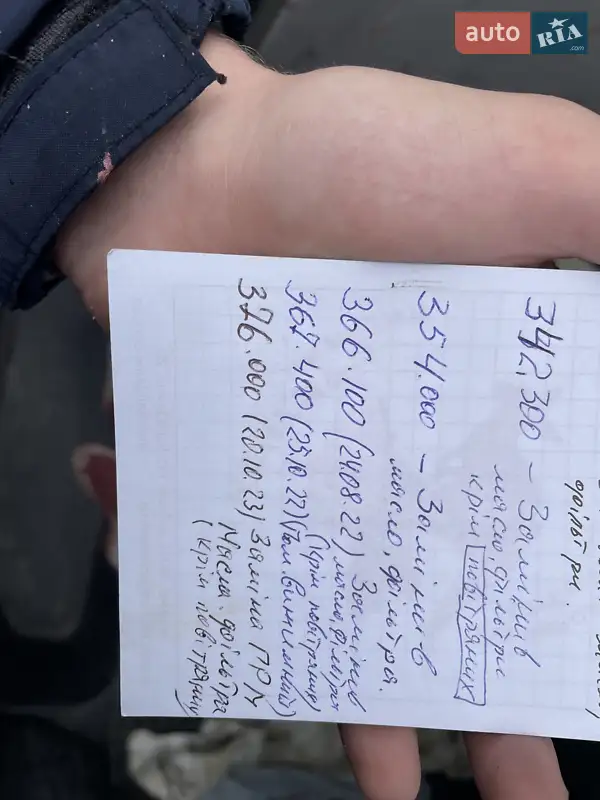 auto RIA .com
фільтри.
342,300 – Замінив
масло, фільтри
крім повітряних
354.000 – Замінив
масло, фільтра.
366.100 (24.08.22) Замінив
масло, фільтра
(крім повітряних)
367.400 (25.10.22)
376.000 (20.10.23) Заміна ГРМ
Масла. фільтра
(крім повітряних